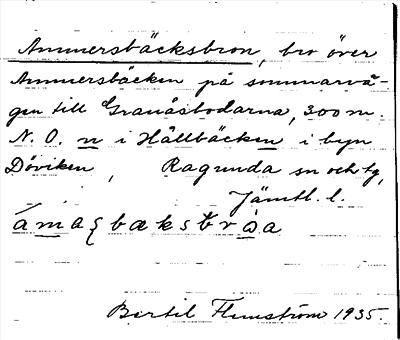 Ammersbäcksbron, bro över
Ammersbäcken på sommarvä-
gen till Granåsbodarna, 300 m.
N. O. n i Hällbäcken i byn
Döviken, Ragunda sn och tg,
Jämtl. l.
Bertil Flemström 1935.